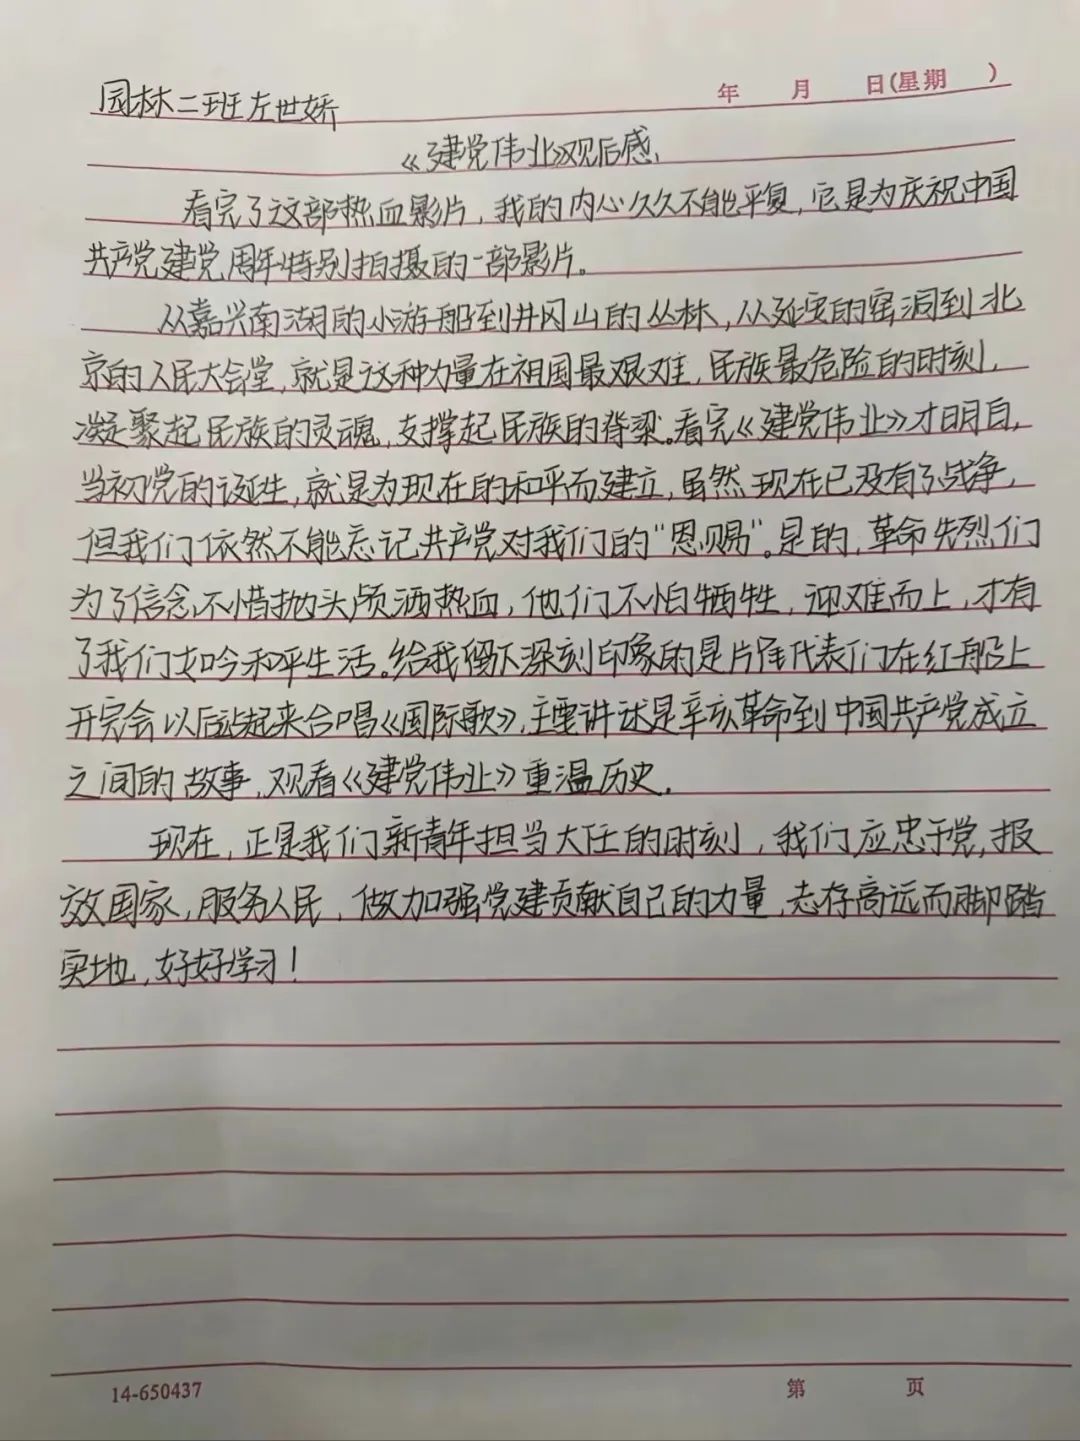 年 月 日(星期 )
园林二班左世娇
《建党伟业》观后感
看完了这部热血影片，我的内心久久不能平复，它是为庆祝中国
共产党建党周年特别拍摄的一部影片。
从嘉兴南湖的小游船到井冈山的丛林，从延安的窑洞到北
京的人民大会堂，就是这种力量在祖国最艰难，民族最危险的时刻，
凝聚起民族的灵魂，支撑起民族的脊梁。看完《建党伟业》才明白，
当初党的诞生，就是为现在的和平而建立，虽然现在已没有了战争，
但我们依然不能忘记共产党对我们的“恩赐”。是的，革命先烈们
为了信念不惜抛头颅洒热血，他们不怕牺牲，迎难而上，才有
了我们如今和平生活。给我留下深刻印象的是片尾代表们在红船上
开完会以后站起来合唱《国际歌》，主要讲述是辛亥革命到中国共产党成立
之间的故事，观看《建党伟业》重温历史。
现在，正是我们新青年担当大任的时刻，我们应忠于党，报
效国家，服务人民，做加强党建贡献自己的力量，志存高远而脚踏
实地，好好学习！
14-650437 第 页